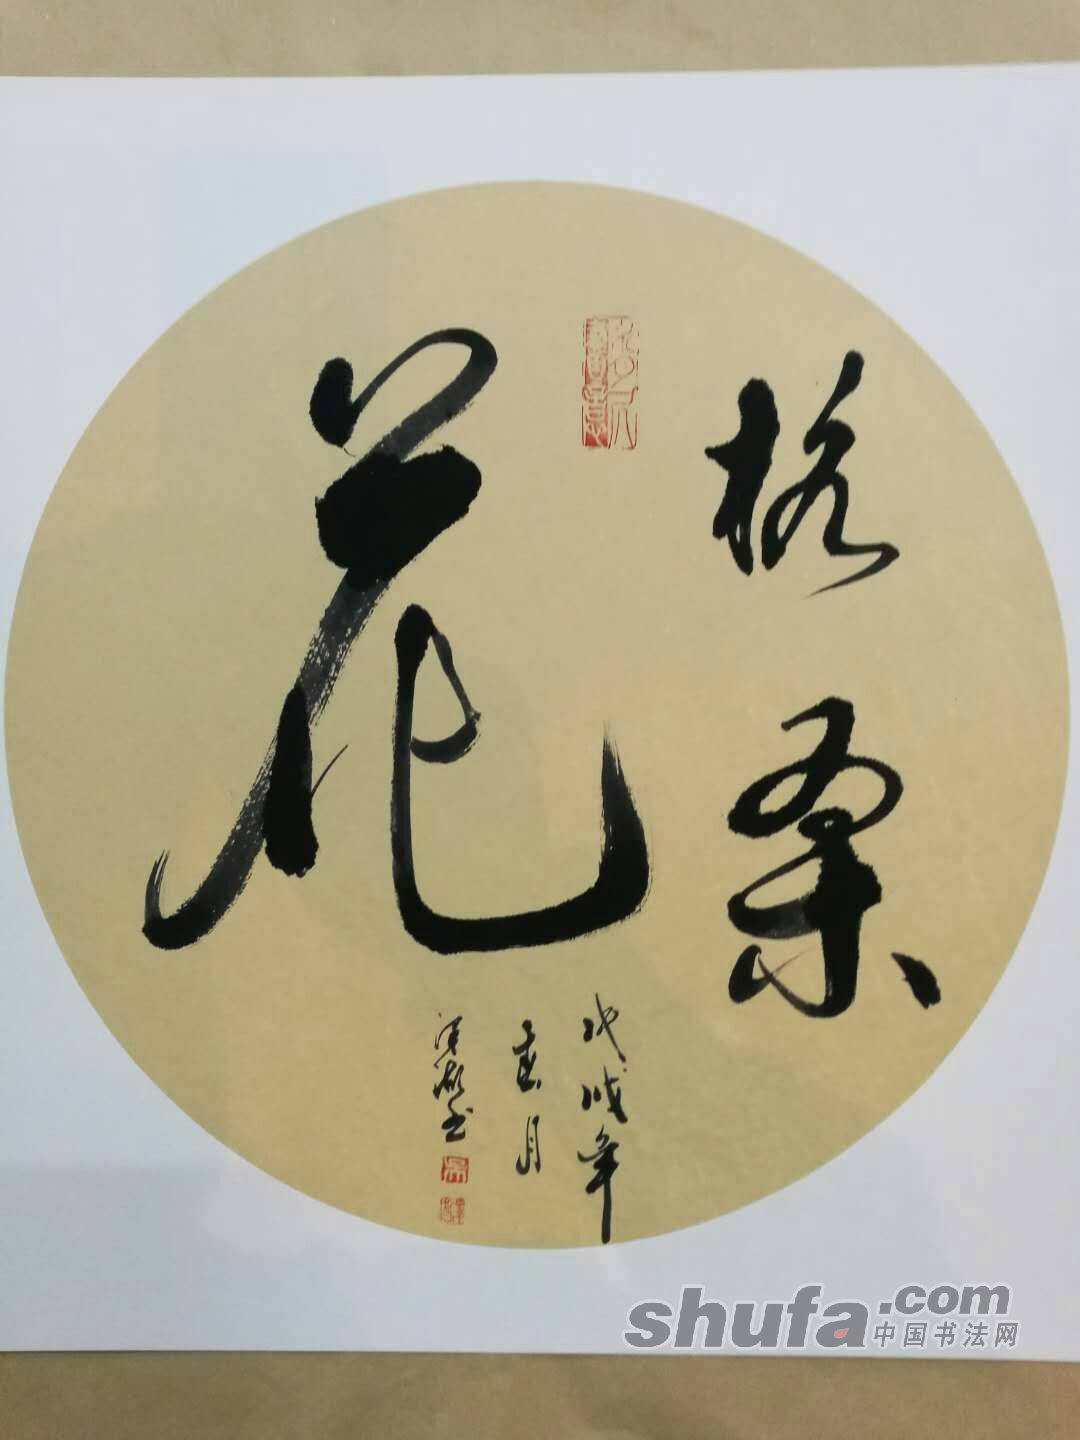 格桑
花
戊戌年
夏月
shufa.com
中国书法网